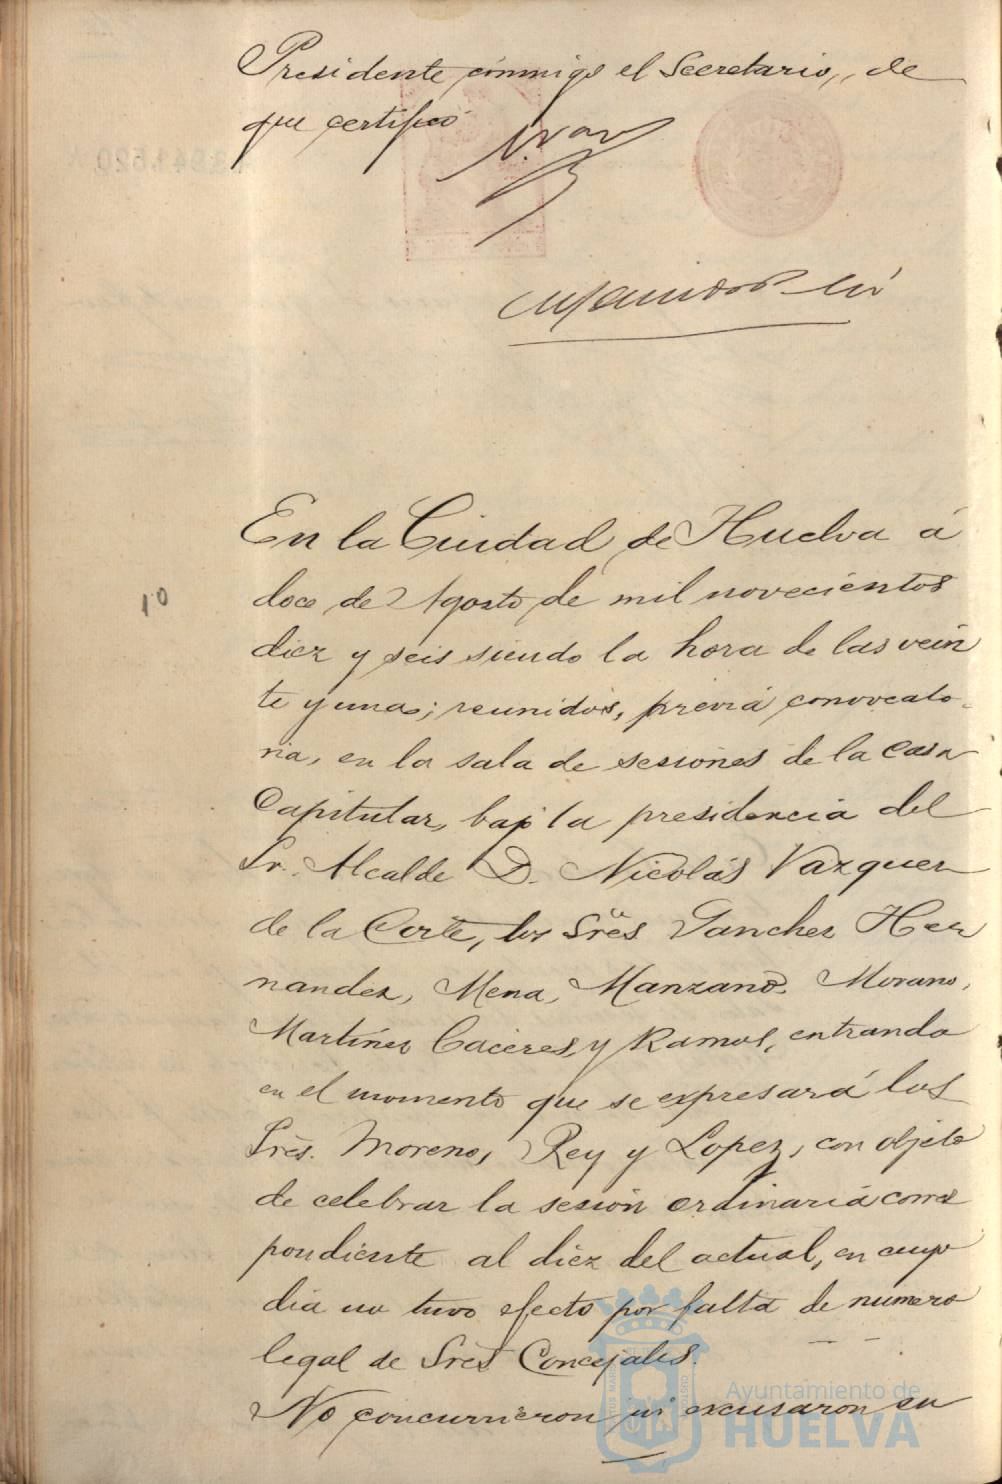 Presidente conmigo el Secretario, de
que certifico
En la Ciudad de Huelva á
10
doce de Agosto de mil novecientos
diez y seis siendo la hora de las vein
te y una; reunidos, previa convocato-
ria, en la sala de sesiones de la Casa
Capitular, bajo la presidencia del
Sr. Alcalde D. Nicolás Vazquez
de la Corte, los Sres Sanchez Her
nandez, Mena, Manzano, Morano,
Martinez Caceres y Ramos, entrando
en el momento que se expresará los
Sres. Moreno, Rey y Lopez, con objeto
de celebrar la sesión ordinaria corres
pondiente al diez del actual, en cuyo
dia no tuvo efecto por falta de numero
legal de Sres Concejales.
No concurrieron ni excusaron su
Ayuntamiento de
HUELVA